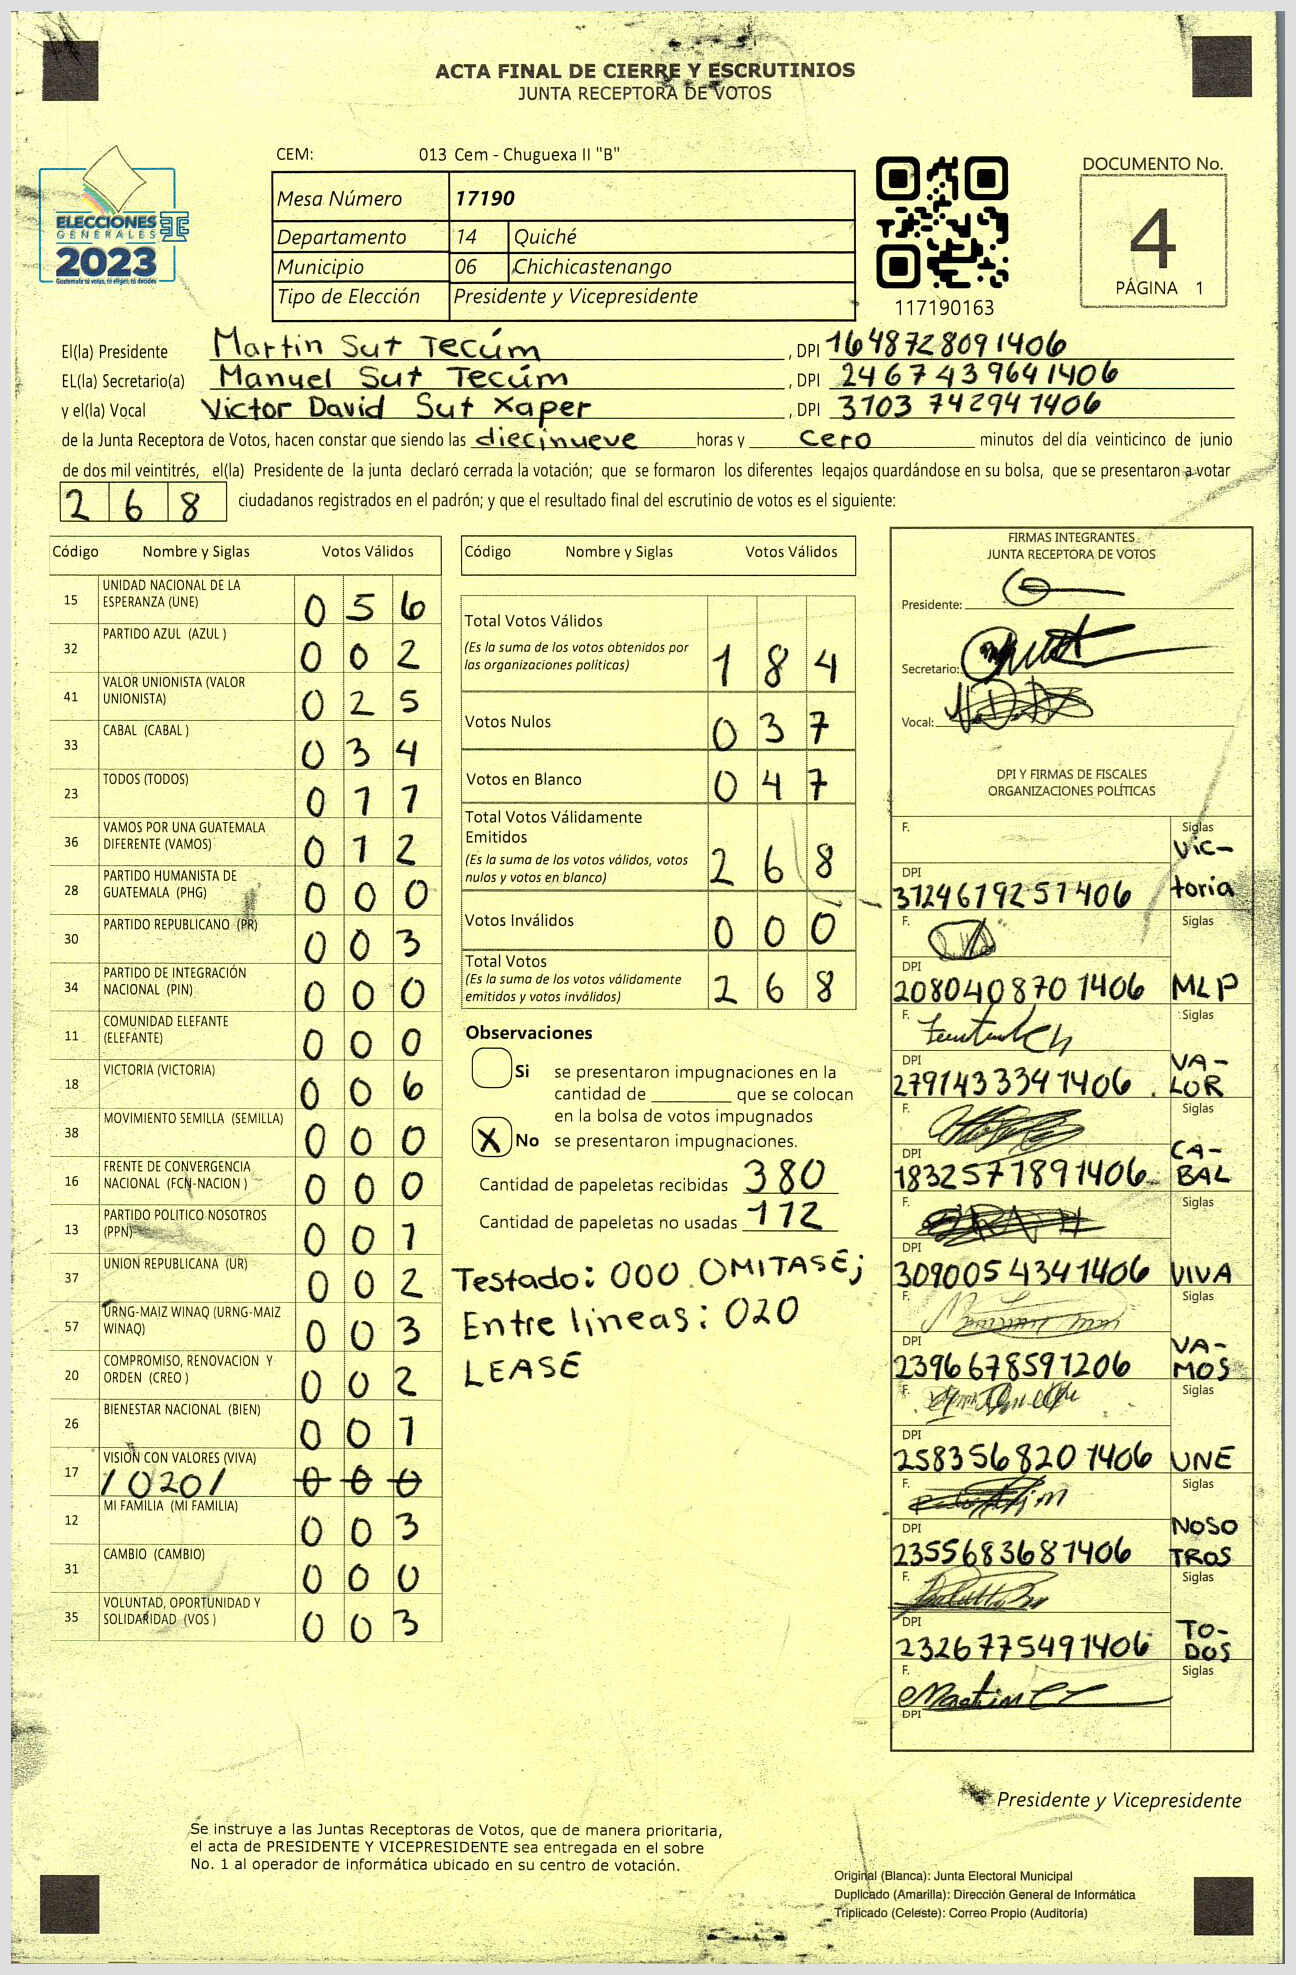 ACTA FINAL DE CIERRE Y ESCRUTINIOS
JUNTA RECEPTORA DE VOTOS
ELECCIONES
GENERALES
2023
CEM: 013 Cem - Chuguexa II "B"
Mesa Número 17190
Departamento 14 Quiché
Municipio 06 Chichicastenango
Tipo de Elección Presidente y Vicepresidente
117190163
DOCUMENTO No.
4
PÁGINA 1
El(la) Presidente Martin Sut Tecúm , DPI 1648728091406
EL(la) Secretario(a) Manuel Sut Tecúm , DPI 2467439641406
y el(la) Vocal Victor David Sut Xaper , DPI 3103742941406
de la Junta Receptora de Votos, hacen constar que siendo las diecinueve horas y cero minutos del día veinticinco de junio
de dos mil veintitrés, el(la) Presidente de la junta declaró cerrada la votación; que se formaron los diferentes legajos guardándose en su bolsa, que se presentaron a votar
268 ciudadanos registrados en el padrón; y que el resultado final del escrutinio de votos es el siguiente:
Código Nombre y Siglas Votos Válidos
15 UNIDAD NACIONAL DE LA ESPERANZA (UNE) 056
32 PARTIDO AZUL (AZUL ) 002
41 VALOR UNIONISTA (VALOR UNIONISTA) 025
33 CABAL (CABAL ) 034
23 TODOS (TODOS) 011
36 VAMOS POR UNA GUATEMALA DIFERENTE (VAMOS) 012
28 PARTIDO HUMANISTA DE GUATEMALA (PHG) 000
30 PARTIDO REPUBLICANO (PR) 003
34 PARTIDO DE INTEGRACIÓN NACIONAL (PIN) 000
11 COMUNIDAD ELEFANTE (ELEFANTE) 000
18 VICTORIA (VICTORIA) 006
38 MOVIMIENTO SEMILLA (SEMILLA) 000
16 FRENTE DE CONVERGENCIA NACIONAL (FCN-NACION ) 000
13 PARTIDO POLITICO NOSOTROS (PPN) 001
37 UNION REPUBLICANA (UR) 002
57 URNG-MAIZ WINAQ (URNG-MAIZ WINAQ) 003
20 COMPROMISO, RENOVACION Y ORDEN (CREO ) 002
26 BIENESTAR NACIONAL (BIEN) 001
17 VISION CON VALORES (VIVA) /020/ 000
12 MI FAMILIA (MI FAMILIA) 003
31 CAMBIO (CAMBIO) 000
35 VOLUNTAD, OPORTUNIDAD Y SOLIDARIDAD (VOS ) 003
Código Nombre y Siglas Votos Válidos
Total Votos Válidos
(Es la suma de los votos obtenidos por
las organizaciones políticas) 184
Votos Nulos 037
Votos en Blanco 047
Total Votos Válidamente
Emitidos
(Es la suma de los votos válidos, votos
nulos y votos en blanco) 268
Votos Inválidos 000
Total Votos
(Es la suma de los votos válidamente
emitidos y votos inválidos) 268
Observaciones
Si se presentaron impugnaciones en la
cantidad de ________ que se colocan
en la bolsa de votos impugnados
X No se presentaron impugnaciones.
Cantidad de papeletas recibidas 380
Cantidad de papeletas no usadas 112
Testado: 000 OMITASE;
Entre lineas: 020
LEASE
FIRMAS INTEGRANTES
JUNTA RECEPTORA DE VOTOS
Presidente:
Secretario:
Vocal:
DPI Y FIRMAS DE FISCALES
ORGANIZACIONES POLÍTICAS
F. Siglas
Vic-
DPI
3124619251406 toria
F. Siglas
DPI
2080408701406 MLP
F. Siglas
DPI VA-
2791433341406 . LOR
F. Siglas
DPI CA-
1832571891406 BAL
F. Siglas
DPI
3090054341406 VIVA
F. Siglas
DPI VA-
2396678591206 MOS
F. Siglas
DPI
2583568201406 UNE
F. Siglas
DPI NOSO
2355683681406 TROS
F. Siglas
DPI TO-
2326775491406 DOS
F. Siglas
DPI
Presidente y Vicepresidente
Se instruye a las Juntas Receptoras de Votos, que de manera prioritaria,
el acta de PRESIDENTE Y VICEPRESIDENTE sea entregada en el sobre
No. 1 al operador de informática ubicado en su centro de votación.
Original (Blanca): Junta Electoral Municipal
Duplicado (Amarilla): Dirección General de Informática
Triplicado (Celeste): Correo Propio (Auditoría)